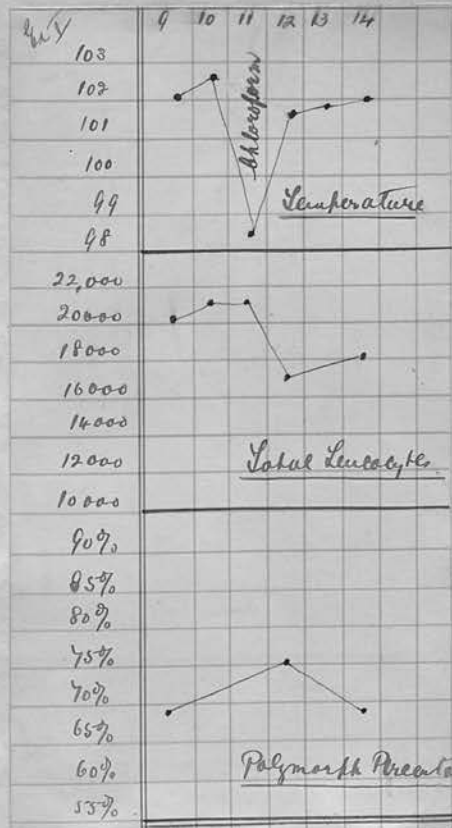 9 10 11 12 13 14
103
102
101
100
99
98
Chloroform
Temperature
22,000
20000
18000
16000
14000
12000
10000
Total Leucocytes
90%
85%
80%
75%
70%
65%
60%
55%
Polymorph Percenta